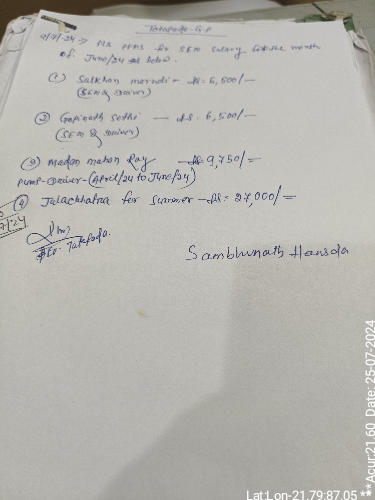 Talapada-G.P
4/7/24 → Mr PPAS for SEM salary for the month
of June/24 as below.
① Salkhan marndi - ds= 6,500/-
(SEM & Driver)
② Gopinath Sethi - ds= 6,500/-
(SEM & Driver)
③ Madan mohan Ray - ds= 9,750/=
Pump-Driver-(April/24 to June/24)
④ Jalachhatra for Summer - ds= 27,000/=
7/24
Sambhunath Hansda
Lat:Lon-21.79:87.05 **Acur:21.60 Date: 25-07-2024